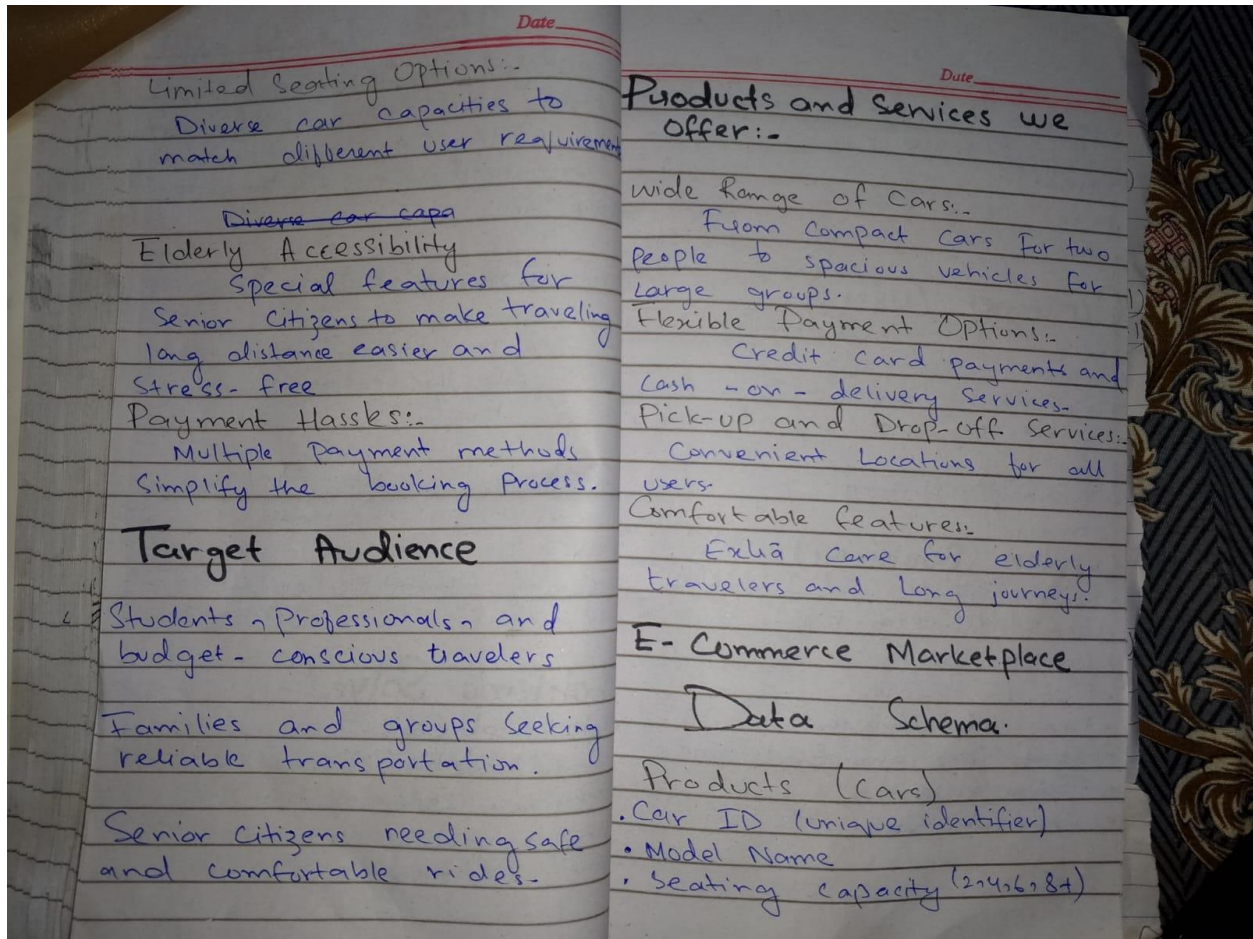 Date
Limited Seating Options:-
Diverse car capacities to
match different user requirement
Diverse car capa
Elderly Accessibility
Special features for
Senior Citizens to make traveling
long distance easier and
Stress-free
Payment Hassles:-
Multiple payment methods
Simplify the booking Process.
Target Audience
Students, Professionals, and
budget-conscious travelers
Families and groups Seeking
reliable transportation.
Senior Citizens needing safe
and comfortable rides-
Date
Products and Services we
Offer:-
wide Range of Cars:-
From Compact Cars For two
people to spacious vehicles for
Large groups.
Flexible Payment Options:-
Credit Card payments and
Cash-on-delivery Services-
Pick-up and Drop-off Services:-
Convenient Locations for all
users-
Comfortable features:-
Extra Care for elderly
travelers and Long journeys.
E-Commerce Marketplace
Data Schema.
Products (Cars)
• Car ID (unique identifier)
• Model Name
• Seating capacity (2,4,6,8+)